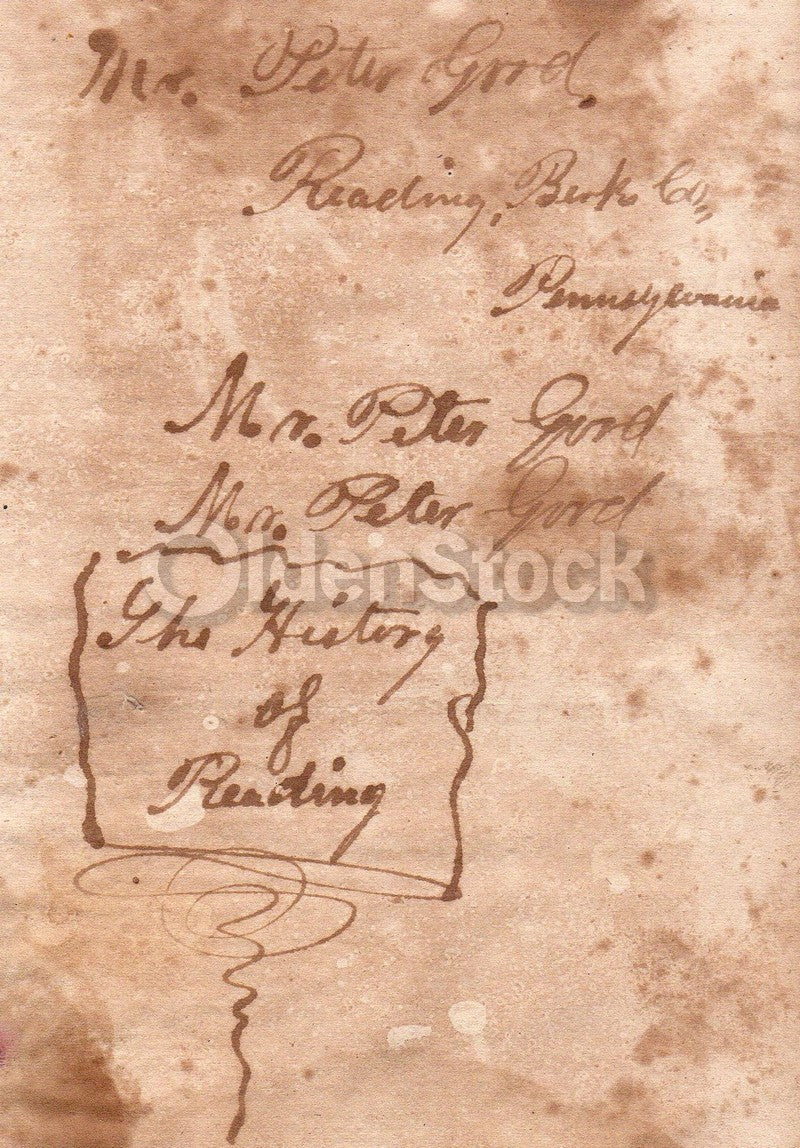 Mr. Peter Gord.
Reading, Berk. Co,,
Pennsylvania
Mr. Peter Gord
Mr. Peter Gord
OldenStock
The History
of
Reading